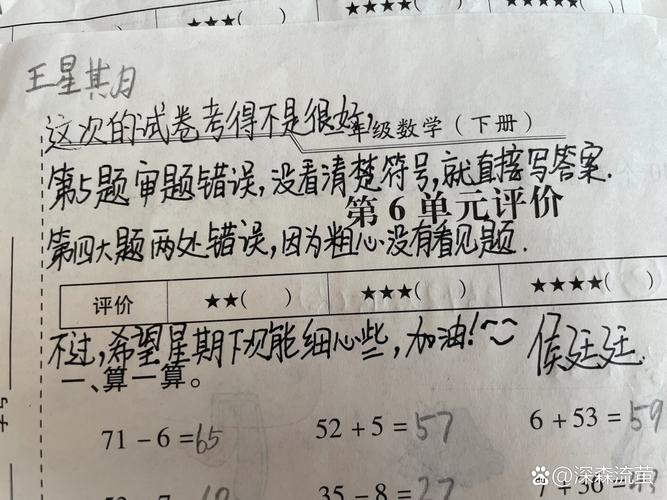 ★★★( ) ★★★★( ) ★★★★★(
王星其月
这次的试卷考得不是很好,
年级数学（下册）
第5题审题错误,没看清楚符号,就直接写答案.
第6单元评价
第四大题两处错误,因为粗心没有看见题.
评价 ★★( ) ★★★( ) ★★★★( )
不过,希望星期下次能细心些,加油!~ 侯廷廷
一、算一算。
71－6＝65 52＋5＝57 6＋53＝59
35－8＝27
Baidu百科 @深森流萤